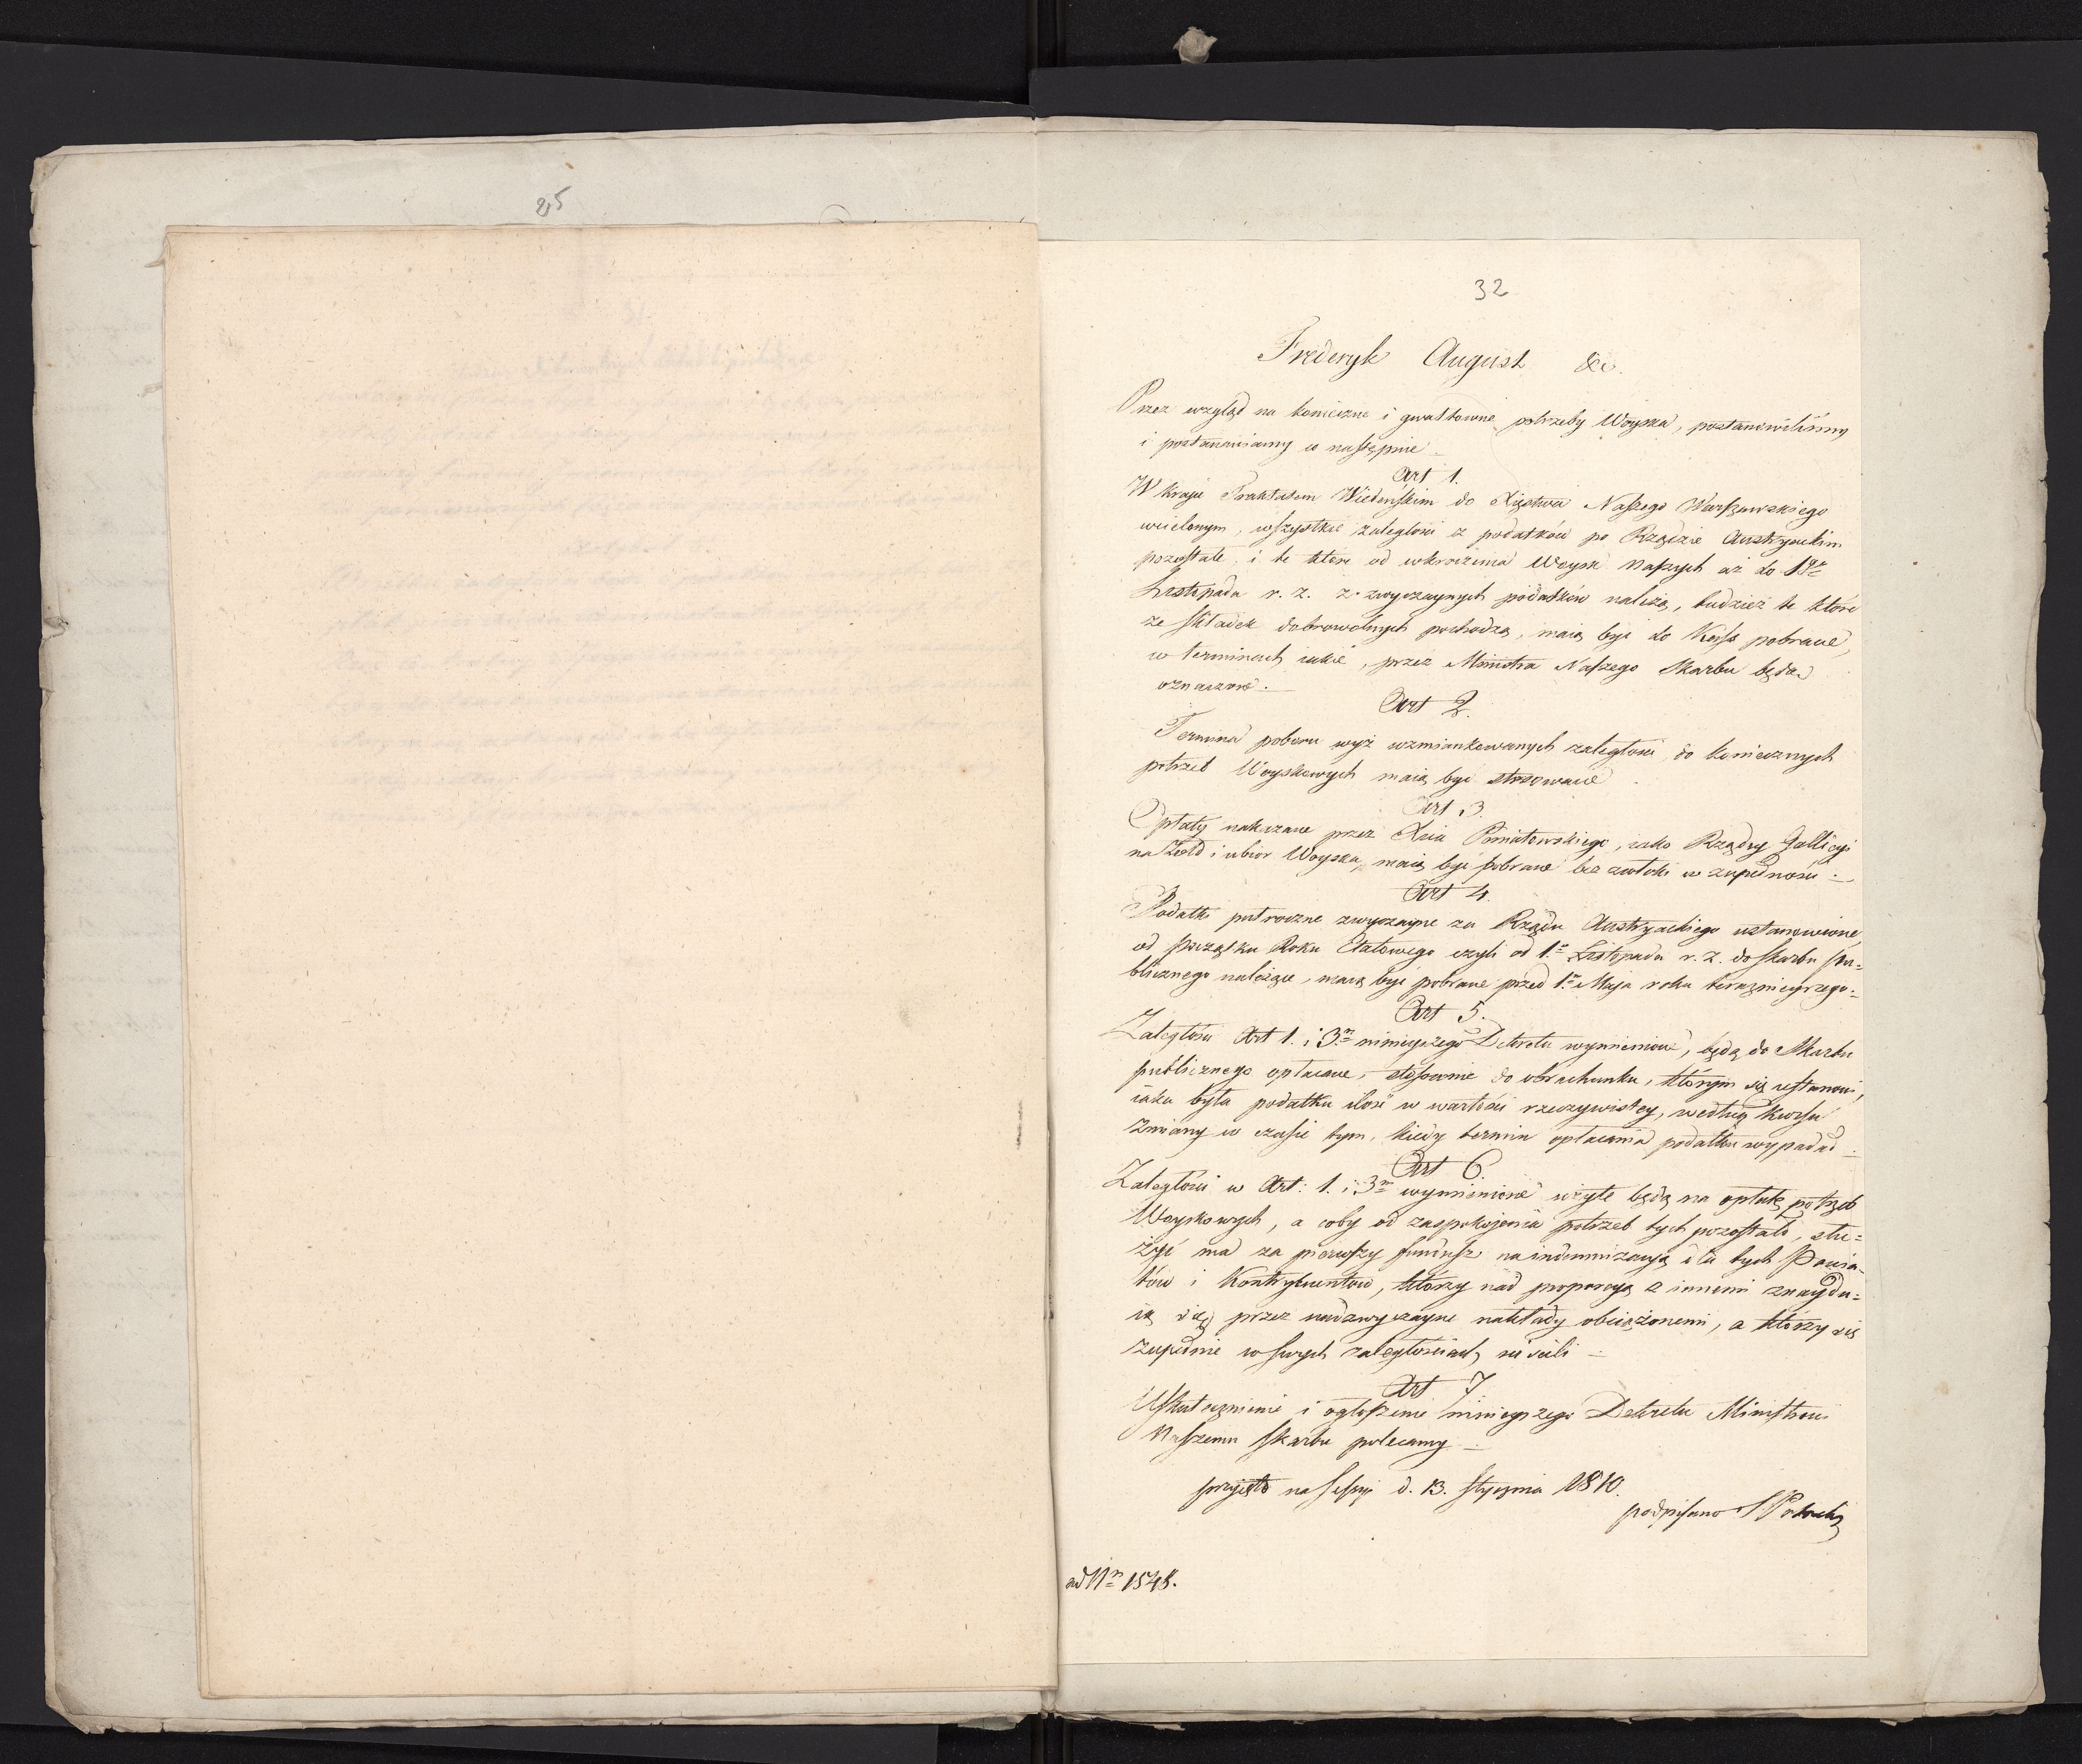 25
32
Frederyk August &c.
Przez wzgląd na konieczne i gwałtowne potrzeby Woyska, postanowiliśmy
i postanawiamy co następnie –
Art 1.
W kraju Traktatem Wiedeńskim do Xięstwa Naszego Warszawskiego
wcielonym, wszystkie zaległości z podatków po Rządzie Austryackim
pozostałe, i te które od wkroczenia Woysk Naszych aż do 1go
Listopada r. z. z zwyczaynych podatków należą, tudzież te które
ze składek dobrowolnych pochodzą, maią być do Kass pobrane,
w terminach iakie, przez Ministra Naszego Skarbu będą
oznaczone. –
Art 2.
Termina poboru wyż wzmiankowanych zaległości do koniecznych
potrzeb Woyskowych maią być stosowane
Art 3.
Opłaty nakazane przez Xcia Poniatowskiego, iako Rządcy Gallicyi
na Żołd i ubior Woyska, maią być pobrane bez zwłoki w zupełności –
Art 4.
Podatki putroczne zwyczayne za Rządu Austryackiego ustanowione
od początku Roku Etatowego czyli od 1. Listopada r. z. do skarbu pu=
blicznego należące, maią być pobrane przed 1. Maja roku teraznieyszego –
Art 5.
Zaległości Art 1. i 3m ninieyszego Dekretu wymienione, będą do Skarbu
publicznego opłacane, stosownie do obrachunku, którym się ustanowi,
iaka była podatku ilość w wartości rzeczywistey, według kursu
zmiany w czasie tym, kiedy termin opłacania podatku wypadał –
Art 6.
Zaległości w Art: 1. i 3m wymienione użyte będą na opłatę potrzeb
Woyskowych, a coby od zaspokojenia potrzeb tych pozostało, słu=
żyć ma za pierwszy fundusz na indemnizacyą dla tych Powia-
tów i Kontrybuentow, którzy nad proporcyą z innemi znaydu=
ią się przez nadzwyczayne nakłady obciążonemi, a którzy się
zupełnie w swych zaległościach uiścili –
Art 7
Uskutecznienie i ogłoszenie ninieyszego Dekretu Ministrowi
Naszemu Skarbu polecamy –
przyięto na Sessyi d. 13. Stycznia 1810.
podpisano S Potocki
ad Nr 1548.